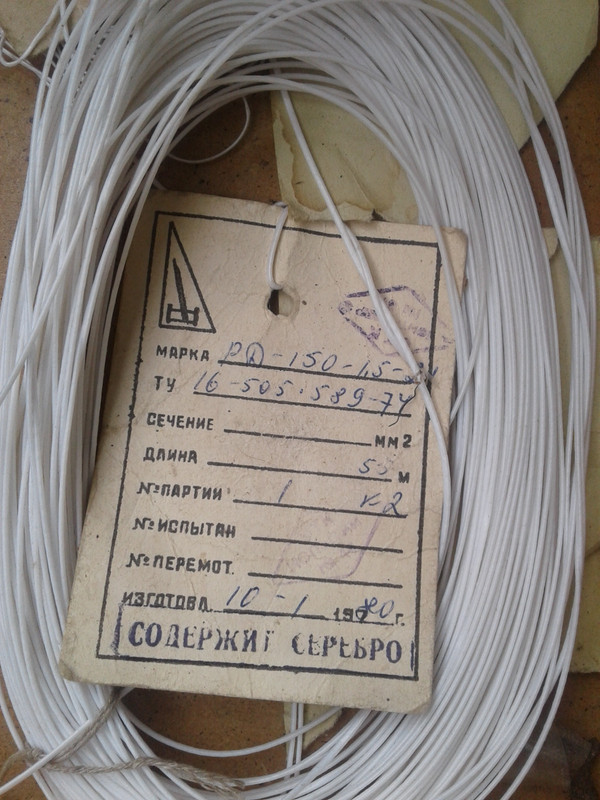 МАРКА РД-150-1,5-
ТУ 16-505.589-74
СЕЧЕНИЕ ММ2
ДЛИНА 55 М
№ПАРТИИ 1 К2
№ИСПЫТАН
№ПЕРЕМОТ.
ИЗГОТОВЛ. 10-1 1980 г.
СОДЕРЖИТ СЕРЕБРО